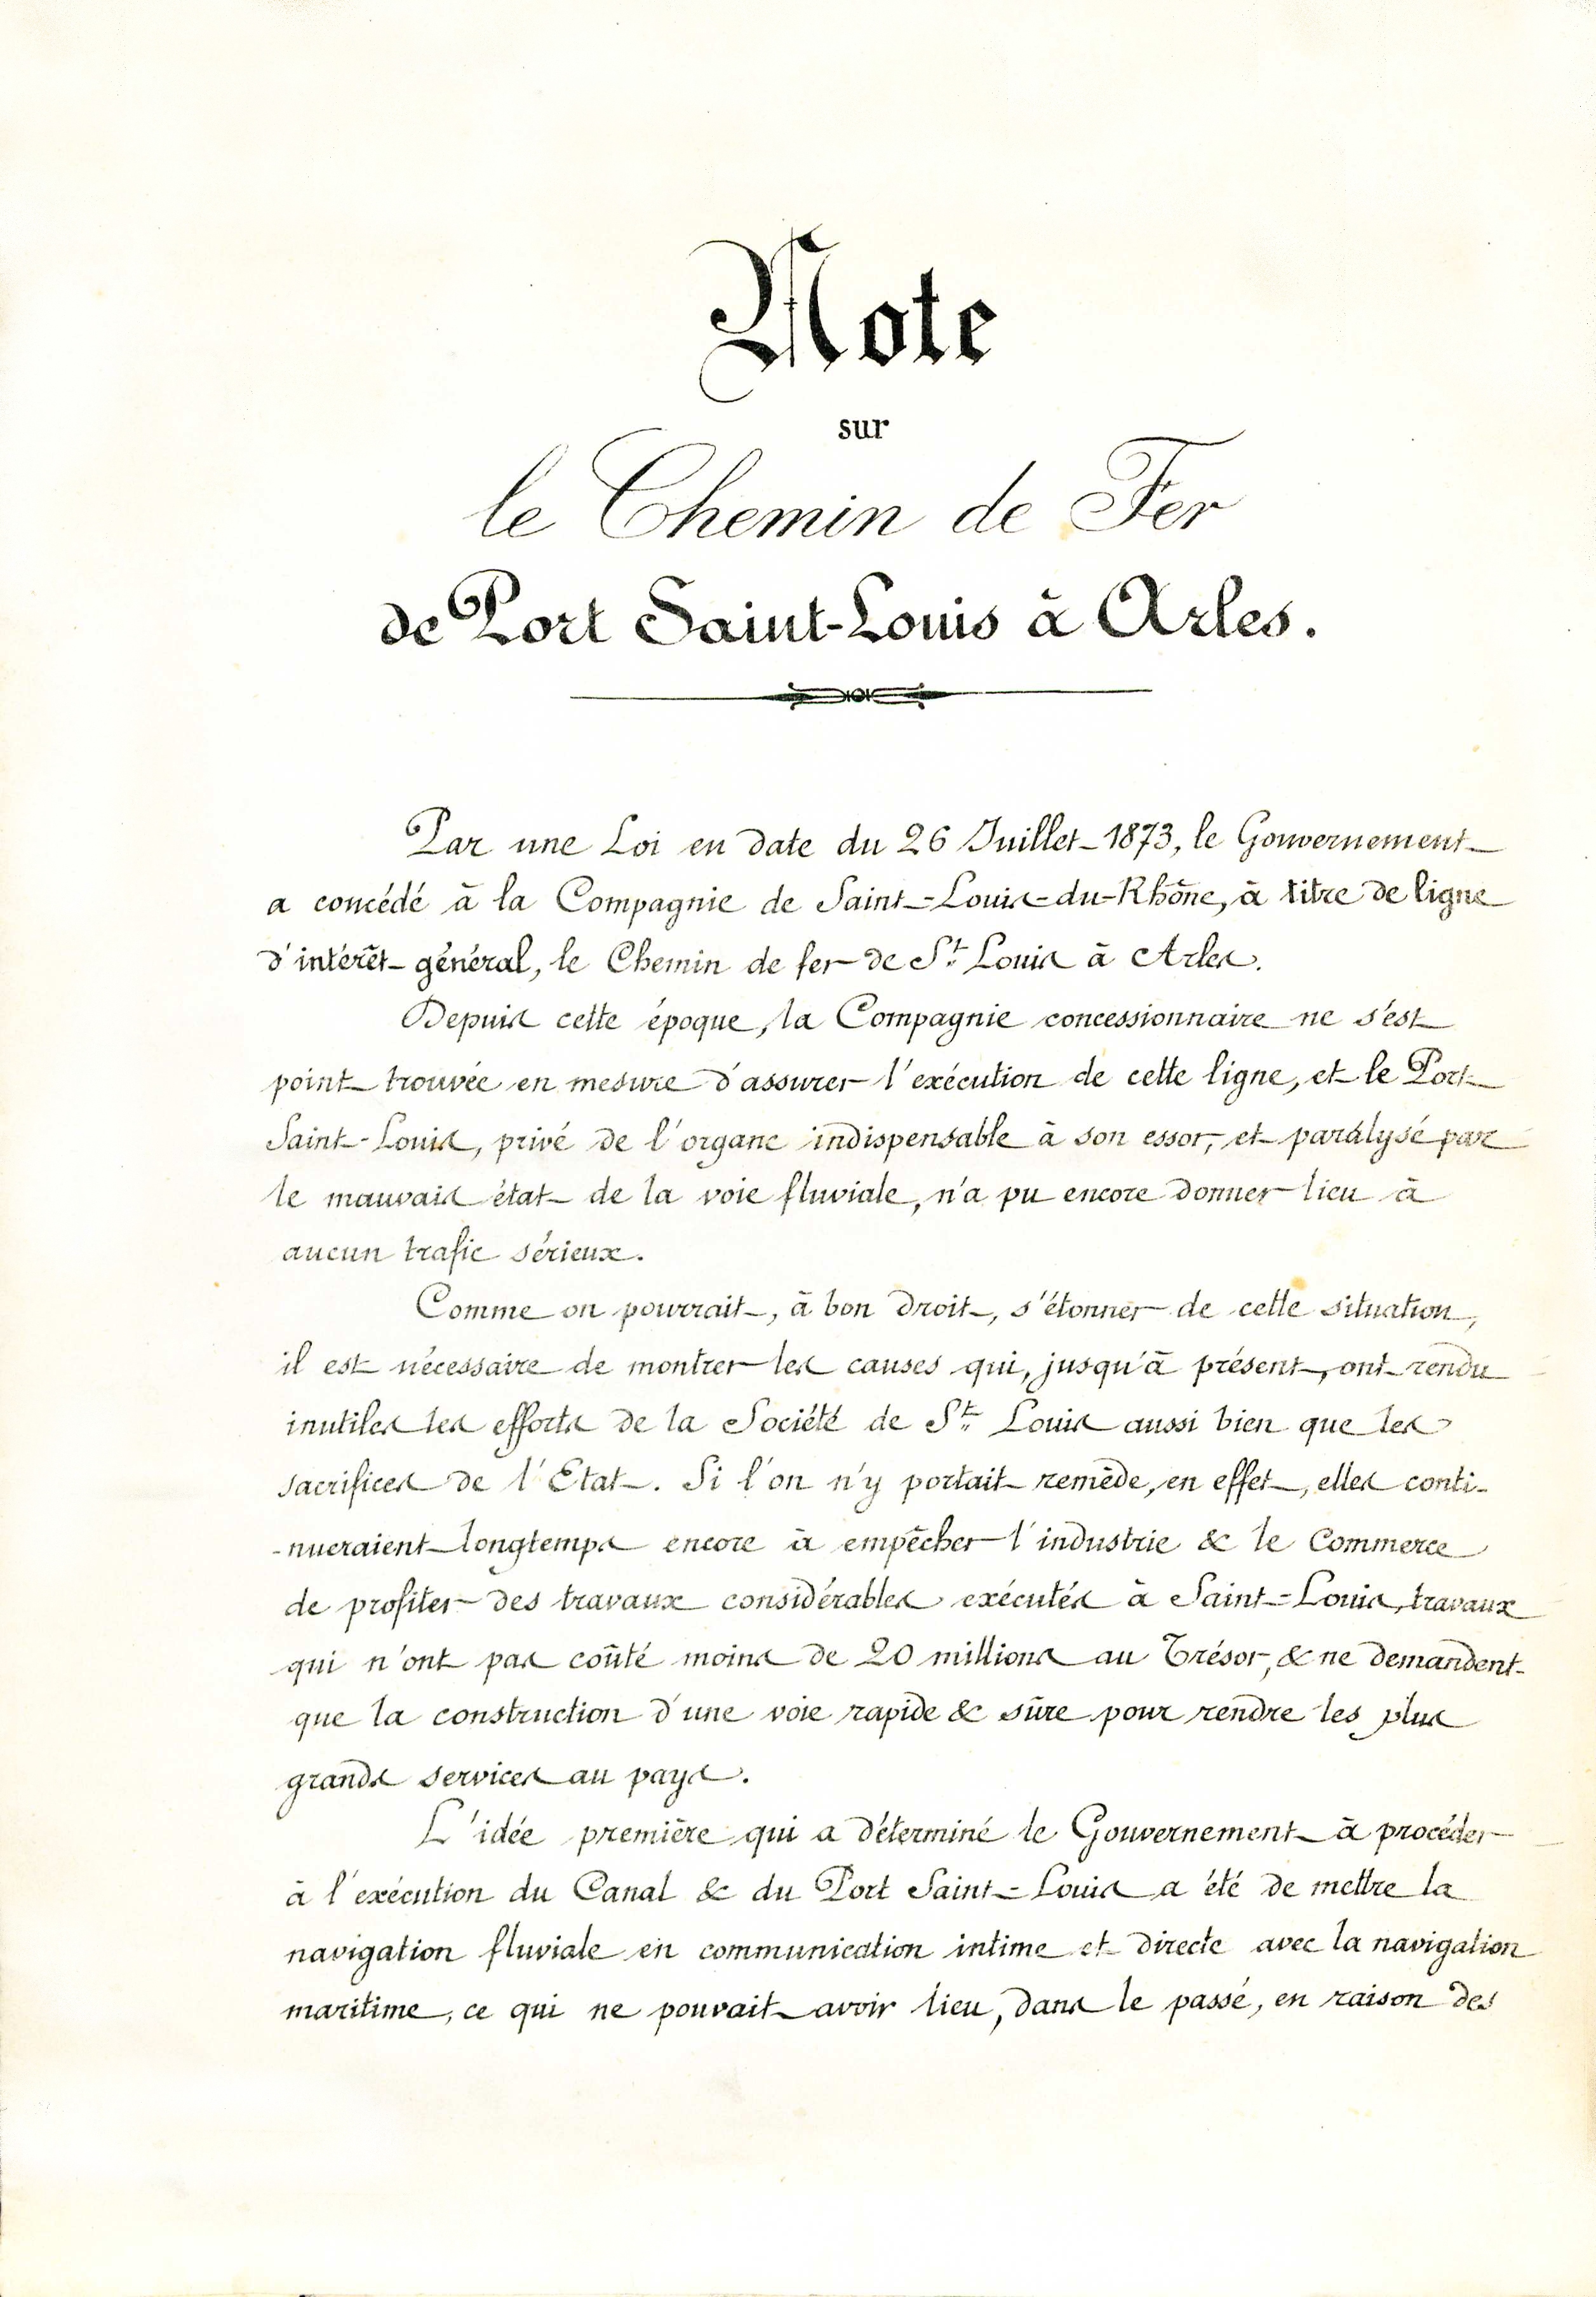 Note
sur
le Chemin de Fer
de Port Saint-Louis à Arles.
Par une Loi en date du 26 Juillet 1873, le Gouvernement
a concédé à la Compagnie de Saint-Louis-du-Rhône, à titre de ligne
d'intérêt général, le Chemin de fer de St Louis à Arles.
Depuis cette époque, la Compagnie concessionnaire ne s'est
point trouvée en mesure d'assurer l'exécution de cette ligne, et le Port
Saint-Louis, privé de l'organe indispensable à son essor, et paralysé par
le mauvais état de la voie fluviale, n'a pu encore donner lieu à
aucun trafic sérieux.
Comme on pourrait, à bon droit, s'étonner de cette situation,
il est nécessaire de montrer les causes qui, jusqu'à présent, ont rendu
inutiles les efforts de la Société de St Louis aussi bien que les
sacrifices de l'Etat. Si l'on n'y portait remède, en effet, elles conti-
-nueraient longtemps encore à empêcher l'industrie & le Commerce
de profiter des travaux considérables exécutés à Saint-Louis, travaux
qui n'ont pas coûté moins de 20 millions au Trésor, & ne demandent
que la construction d'une voie rapide & sûre pour rendre les plus
grands services au pays.
L'idée première qui a déterminé le Gouvernement à procéder
à l'exécution du Canal & du Port Saint-Louis a été de mettre la
navigation fluviale en communication intime et directe avec la navigation
maritime, ce qui ne pouvait avoir lieu, dans le passé, en raison des